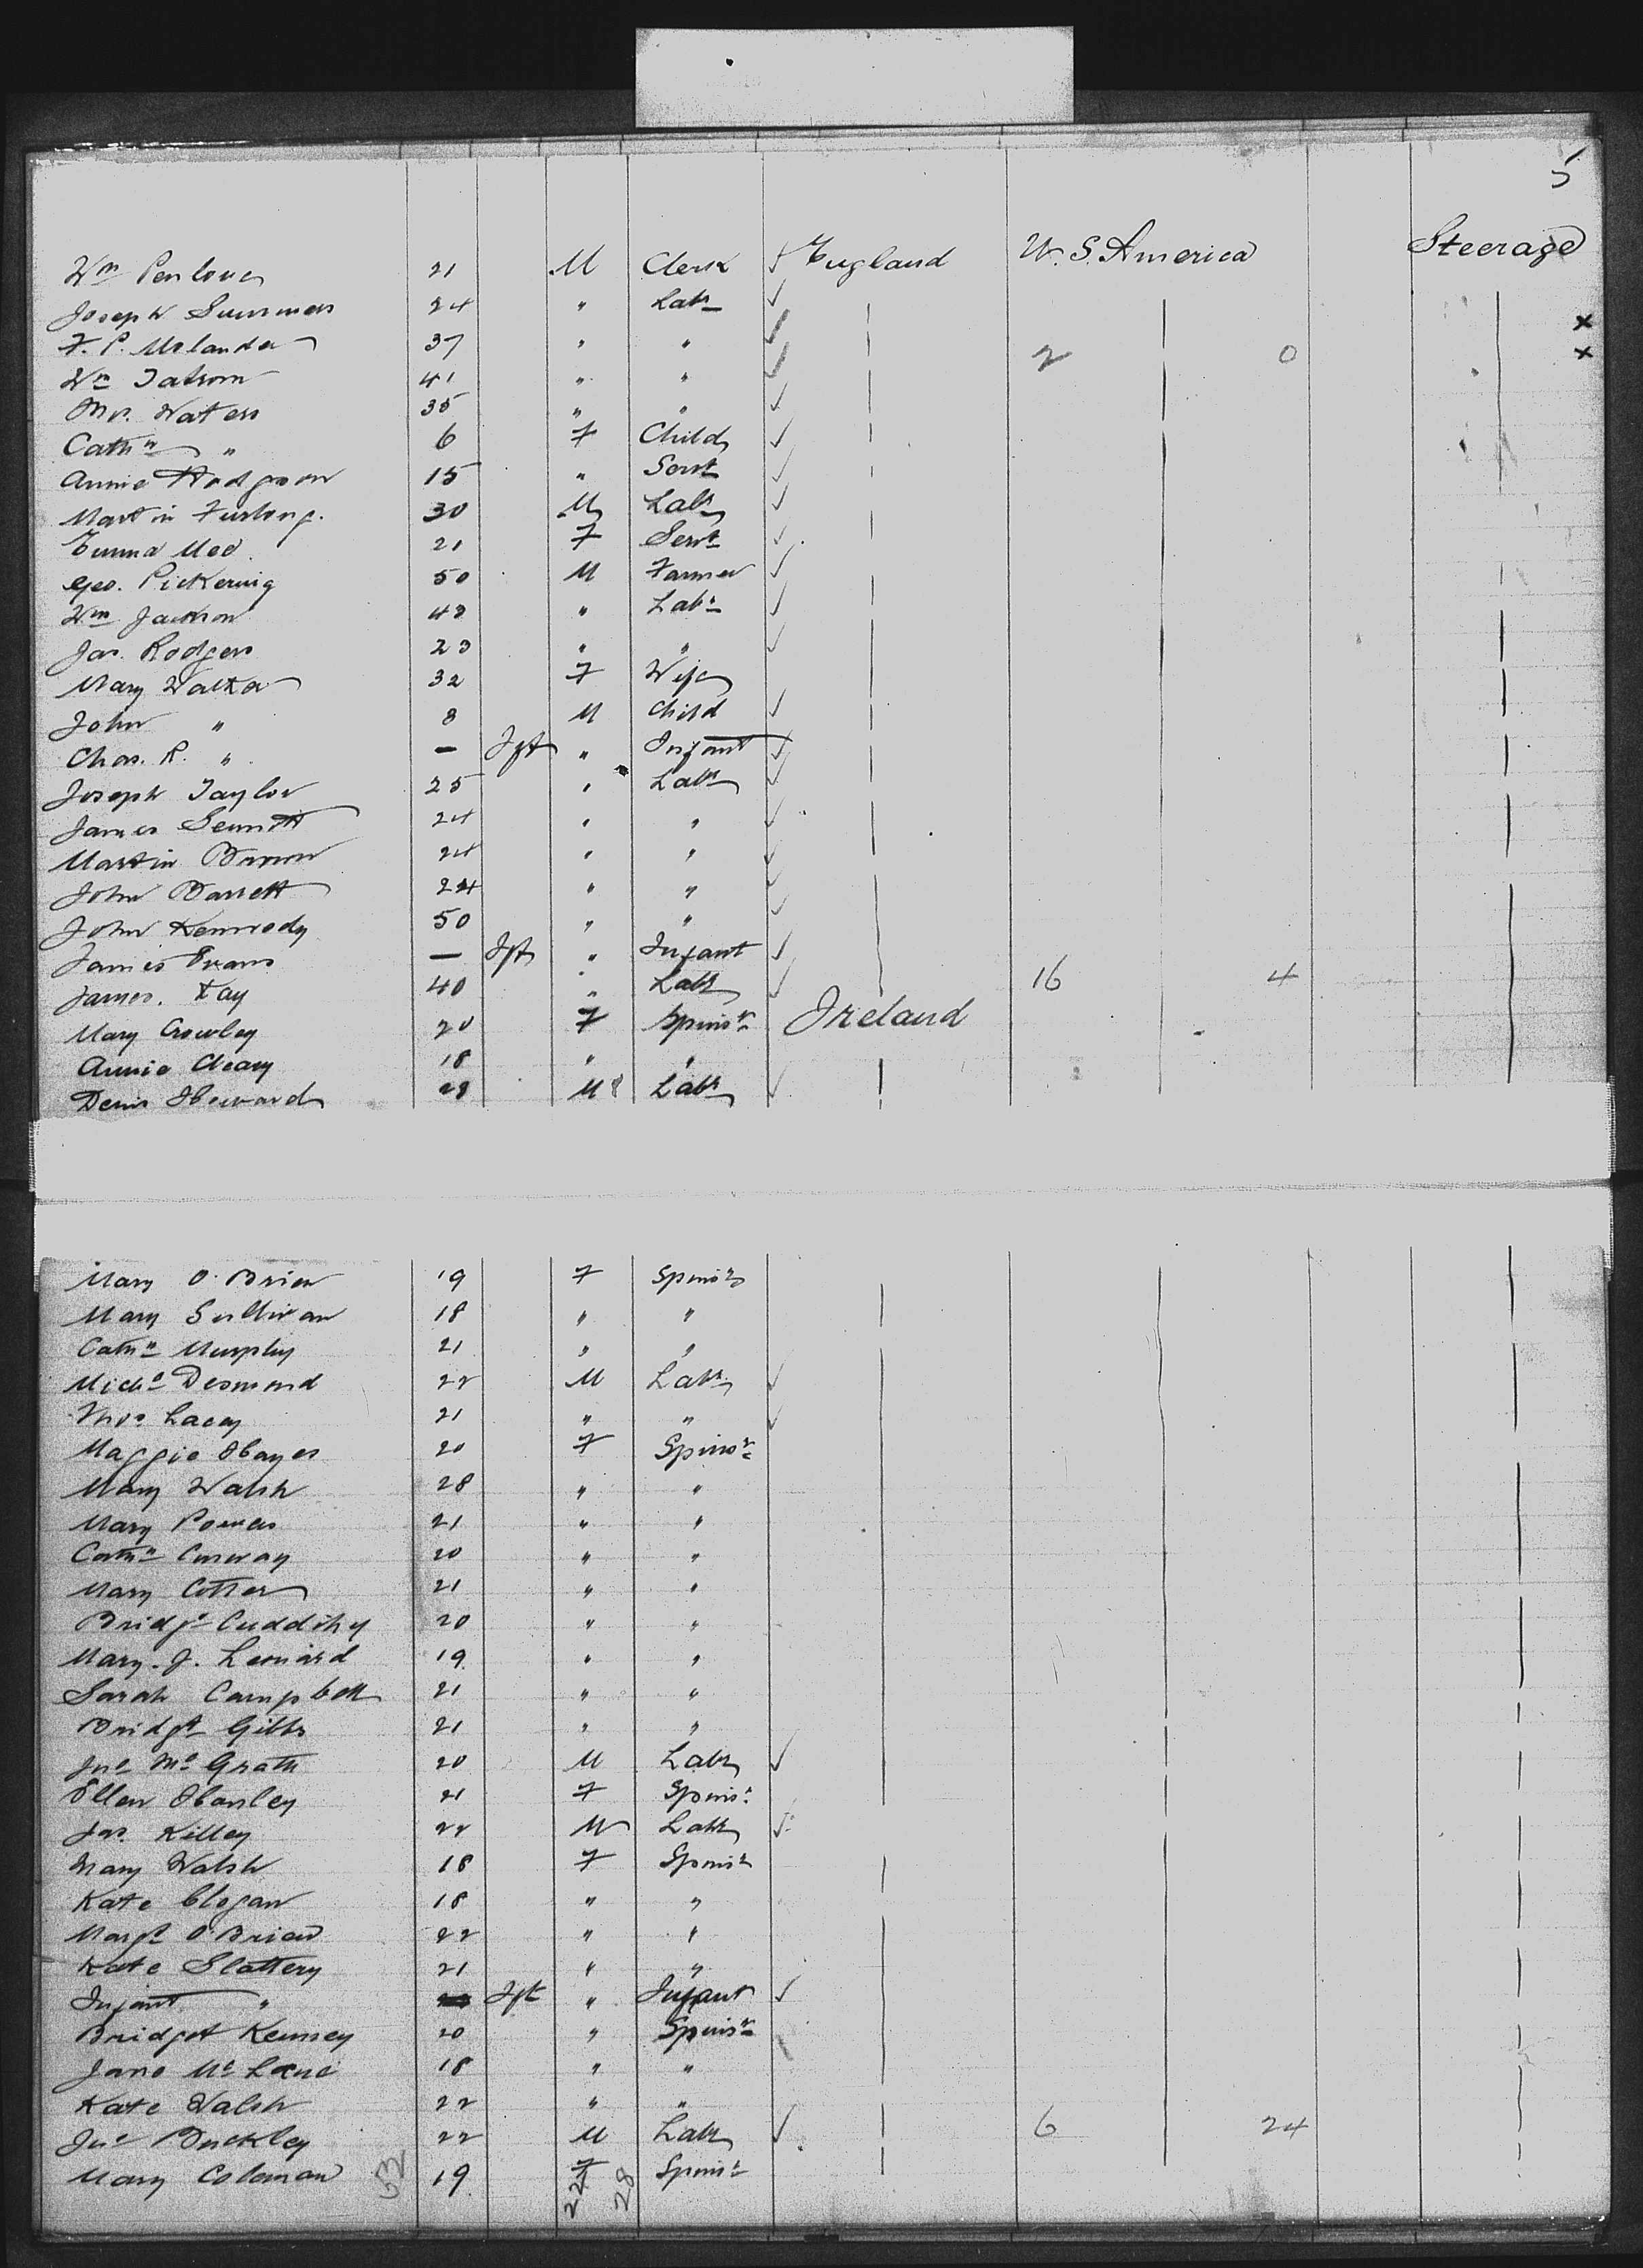 5
Wm Penlove 21 M Clerk ✓ England U.S. America Steerage
Joseph Summers 24 " Labr ✓
F. P. 37 " " ✓ 2 0 x
Wm Tatrom 41 " " ✓ x
Mr. Waters 35 " " ✓
Cathn " 6 F Child ✓
Annie Hodgson 15 " Servt ✓
Martin Furlong. 30 M Labr ✓
Emma Moo 21 F Servt ✓
Geo. Pickering 50 M Farmer ✓
Wm Jackson 43 " Labr ✓
Jas. Rodgers 23 " " ✓
Mary Walker 32 F Wife
John " 8 M Child ✓
Chas. R. " — Ift " Infant ✓
Joseph Taylor 25 " Labr ✓
James Sennott 24 " " ✓
Martin Brown 24 " " ✓
John Barrett 24 " " ✓
John Kennedy 50 " " ✓
James Evans — Ift " Infant ✓
James. Kay 40 " Labr ✓ 16 4
Mary Crowley 20 F Spinsr Ireland
Annie Cleary 18 " "
Denis Heward 28 M Labr ✓
Mary O'Brien 19 F Spinsr
Mary Sullivan 18 " "
Cathn Murphy 21 " "
Michl Desmond 22 M Labr ✓
Thos Lacey 21 " " ✓
Maggie Hayes 20 F Spinsr
Mary Walsh 28 " "
Mary Powers 21 " "
Cathn Conway 20 " "
Mary Cotter 21 " "
Bridgt Cuddihy 20 " "
Mary. J. Leonard 19 " "
Sarah Campbell 21 " "
Bridgt Gibbs 21 " "
Jno McGrath 20 M Labr ✓
Ellen Hanley 21 F Spinsr
Jas. Killey 22 M Labr ✓
Mary Walsh 18 F Spinsr
Kate Clogan 18 " "
Margt O'Brien 22 " "
Kate Slattery 21 " "
Infant " Ift " Infant ✓
Bridget Kenney 20 " Spinsr
Jane McLane 18 " "
Kate Walsh 22 " "
Jno Buckley 22 M Labr ✓ 6 24
Mary Coleman 19 F Spinsr
28